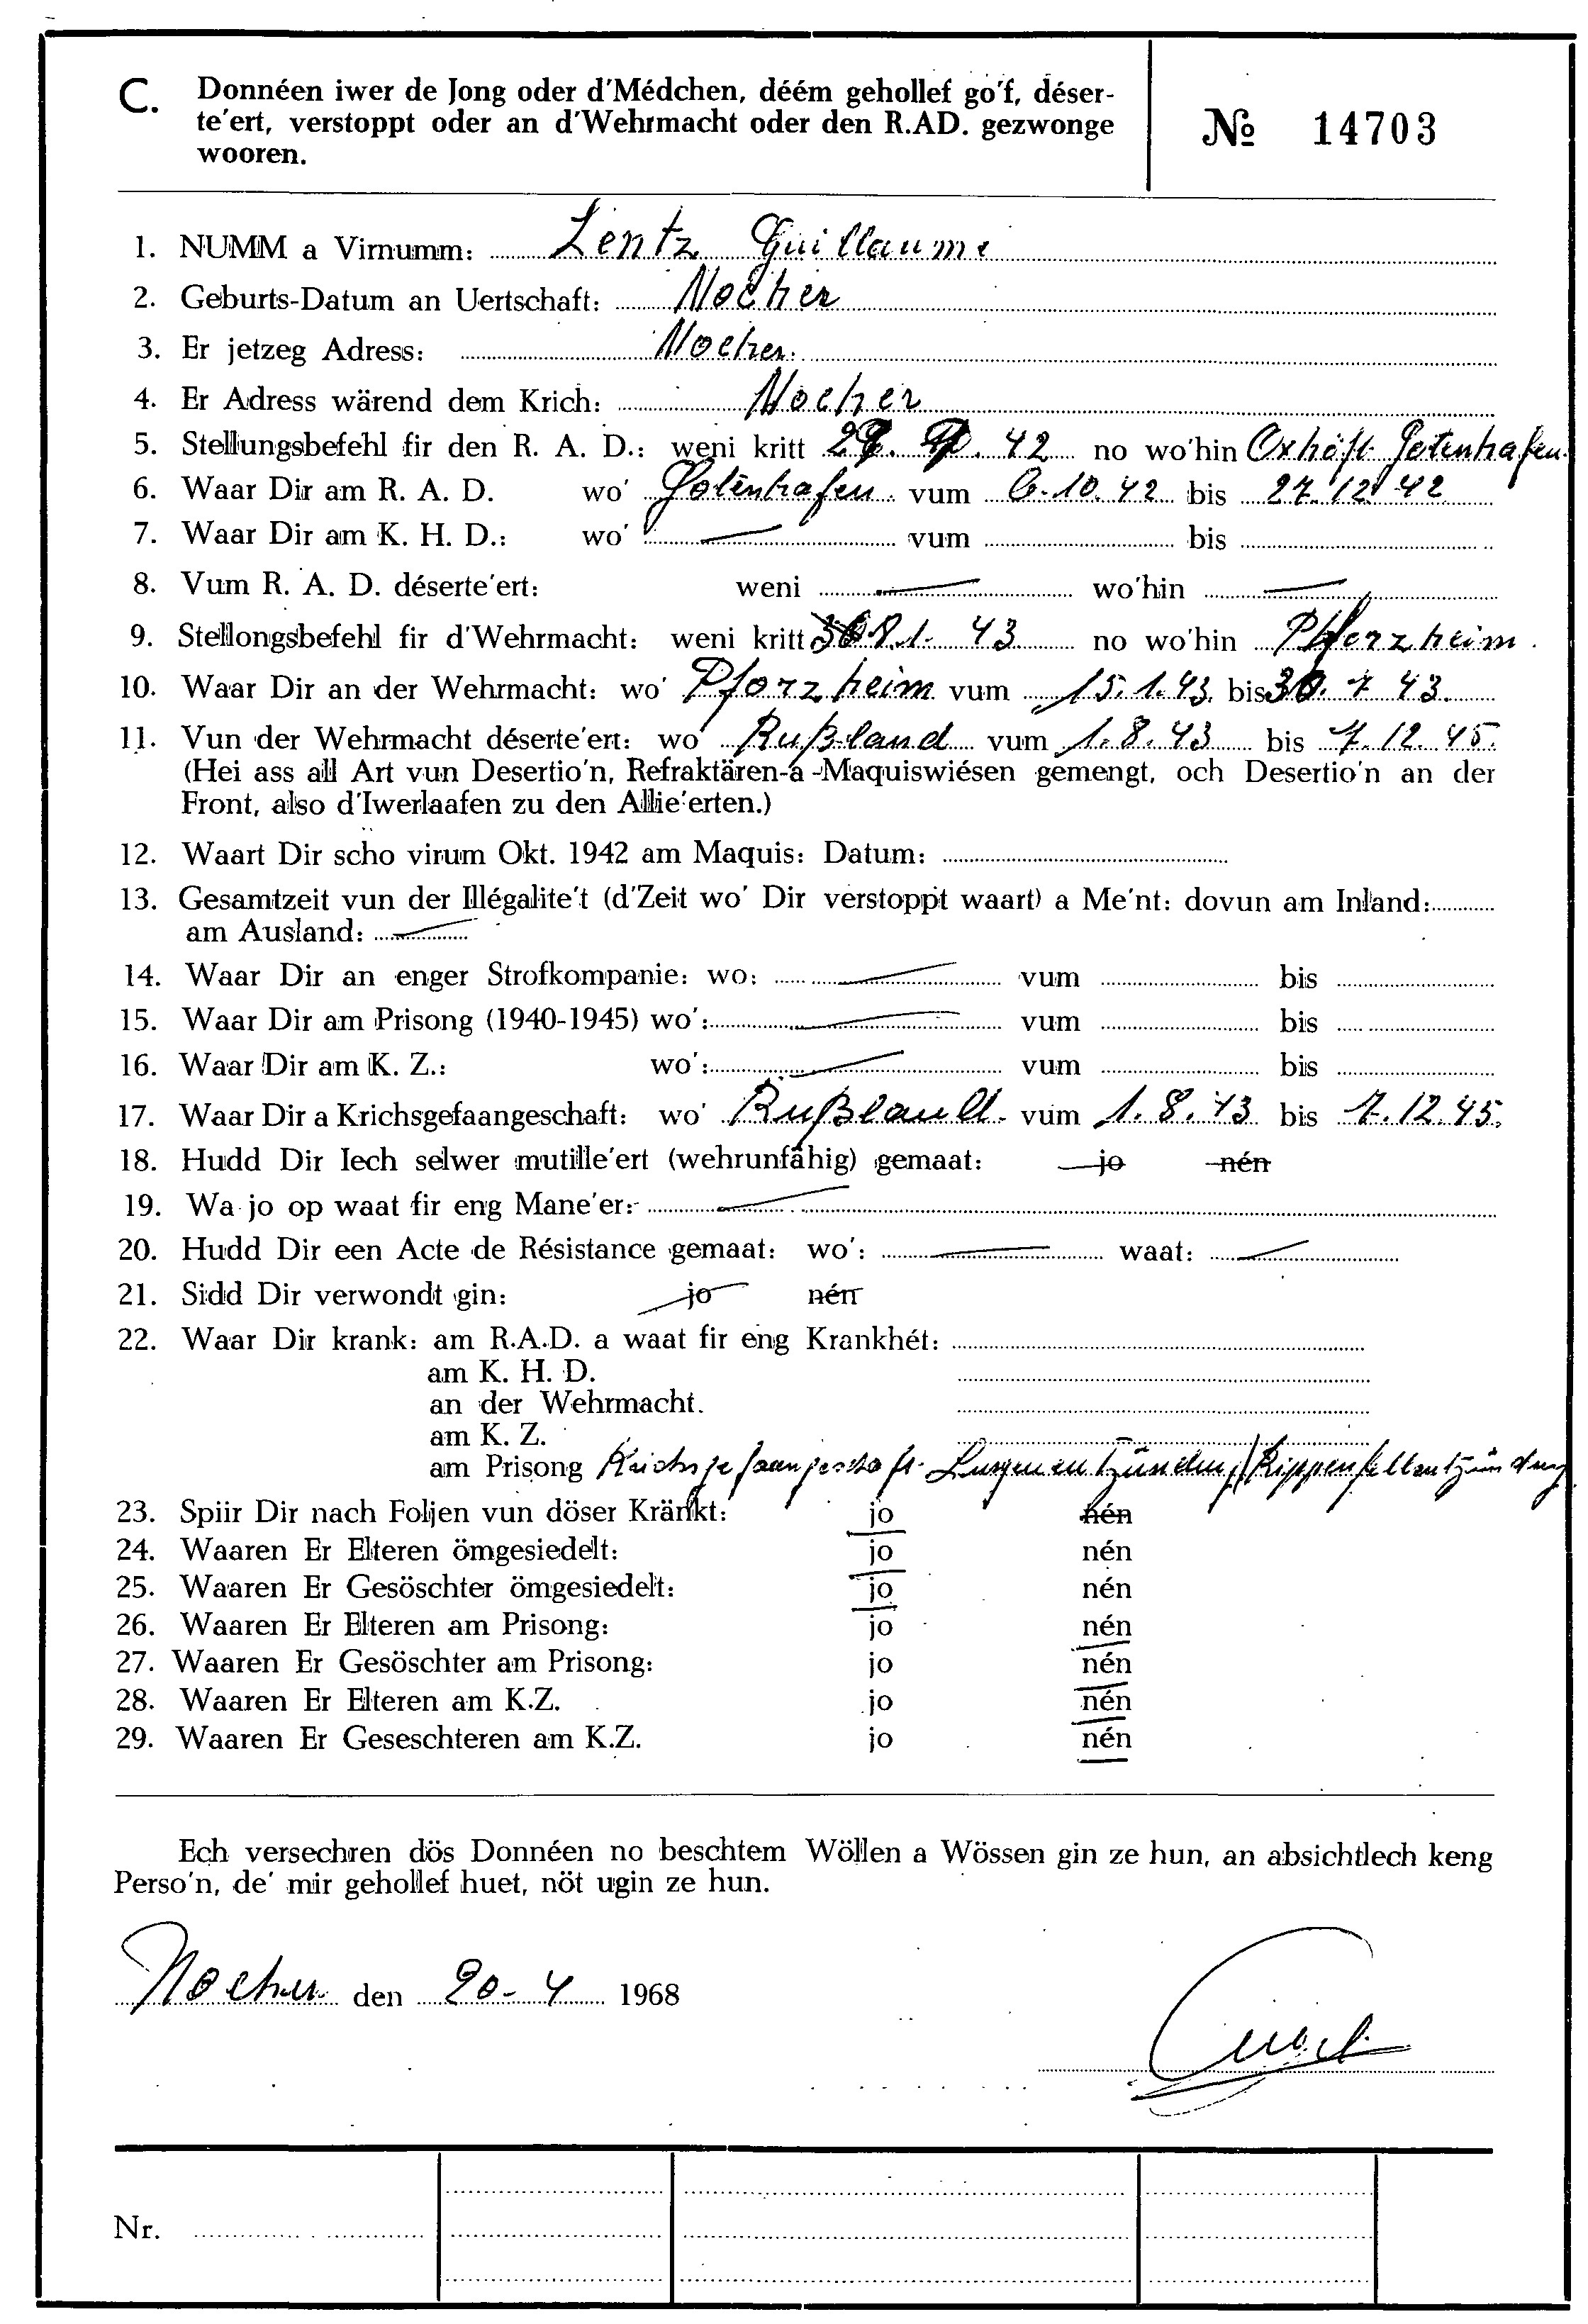 C. Donnéen iwer de Jong oder d'Médchen, déém gehollef go'f, déser-
te'ert, verstoppt oder an d'Wehrmacht oder den R.AD. gezwonge
wooren.
№ 14703
1. NUMM a Virnumm: Lentz Guillaume
2. Geburts-Datum an Uertschaft: Nocher
3. Er jetzeg Adress: Nocher.
4. Er Adress wärend dem Krich: Nocher
5. Stellungsbefehl fir den R. A. D.: weni kritt 42 no wo'hin Oxhöft Gotenhafen
6. Waar Dir am R. A. D. wo' Gotenhafen vum 6.10.42 bis 27.12.42
7. Waar Dir am K. H. D.: wo' — vum bis
8. Vum R. A. D. déserte'ert: weni — wo'hin —
9. Stellongsbefehl fir d'Wehrmacht: weni kritt 1. 43 no wo'hin Pforzheim.
10. Waar Dir an der Wehrmacht: wo' Pforzheim vum 15.1.43. bis 30. 7 43.
11. Vun der Wehrmacht déserte'ert: wo' Rußland vum 1.8.43 bis 7.12.45.
(Hei ass all Art vun Desertio'n, Refraktären-a-Maquiswiésen gemengt, och Desertio'n an der
Front, also d'Iwerlaafen zu den Allie'erten.)
12. Waart Dir scho virum Okt. 1942 am Maquis: Datum:
13. Gesamtzeit vun der Illégalite't (d'Zeit wo' Dir verstoppt waart) a Me'nt: dovun am Inland:
am Ausland: —
14. Waar Dir an enger Strofkompanie: wo: — vum bis
15. Waar Dir am Prisong (1940-1945) wo': — vum bis
16. Waar Dir am K. Z.: wo': — vum bis
17. Waar Dir a Krichsgefaangeschaft: wo' Rußland. vum 1.8.43 bis 7.12.45.
18. Hudd Dir Iech selwer mutille'ert (wehrunfähig) gemaat: jo nén
19. Wa jo op waat fir eng Mane'er: —
20. Hudd Dir een Acte de Résistance gemaat: wo': — waat: —
21. Sidd Dir verwondt gin: jo nén
22. Waar Dir krank: am R.A.D. a waat fir eng Krankhét:
am K. H. D.
an der Wehrmacht.
am K. Z.
am Prisong Krichsgefaangeschaft. Lungenentzündung/Rippenfellentzündung
23. Spiir Dir nach Foljen vun döser Kränkt: jo nén
24. Waaren Er Elteren ömgesiedelt: jo nén
25. Waaren Er Gesöschter ömgesiedelt: jo nén
26. Waaren Er Elteren am Prisong: jo nén
27. Waaren Er Gesöschter am Prisong: jo nén
28. Waaren Er Elteren am K.Z. jo nén
29. Waaren Er Geseschteren am K.Z. jo nén
Ech versechren dös Donnéen no beschtem Wöllen a Wössen gin ze hun, an absichtlech keng
Perso'n, de' mir gehollef huet, nöt ugin ze hun.
Nocher den 20-4 1968
Nr.